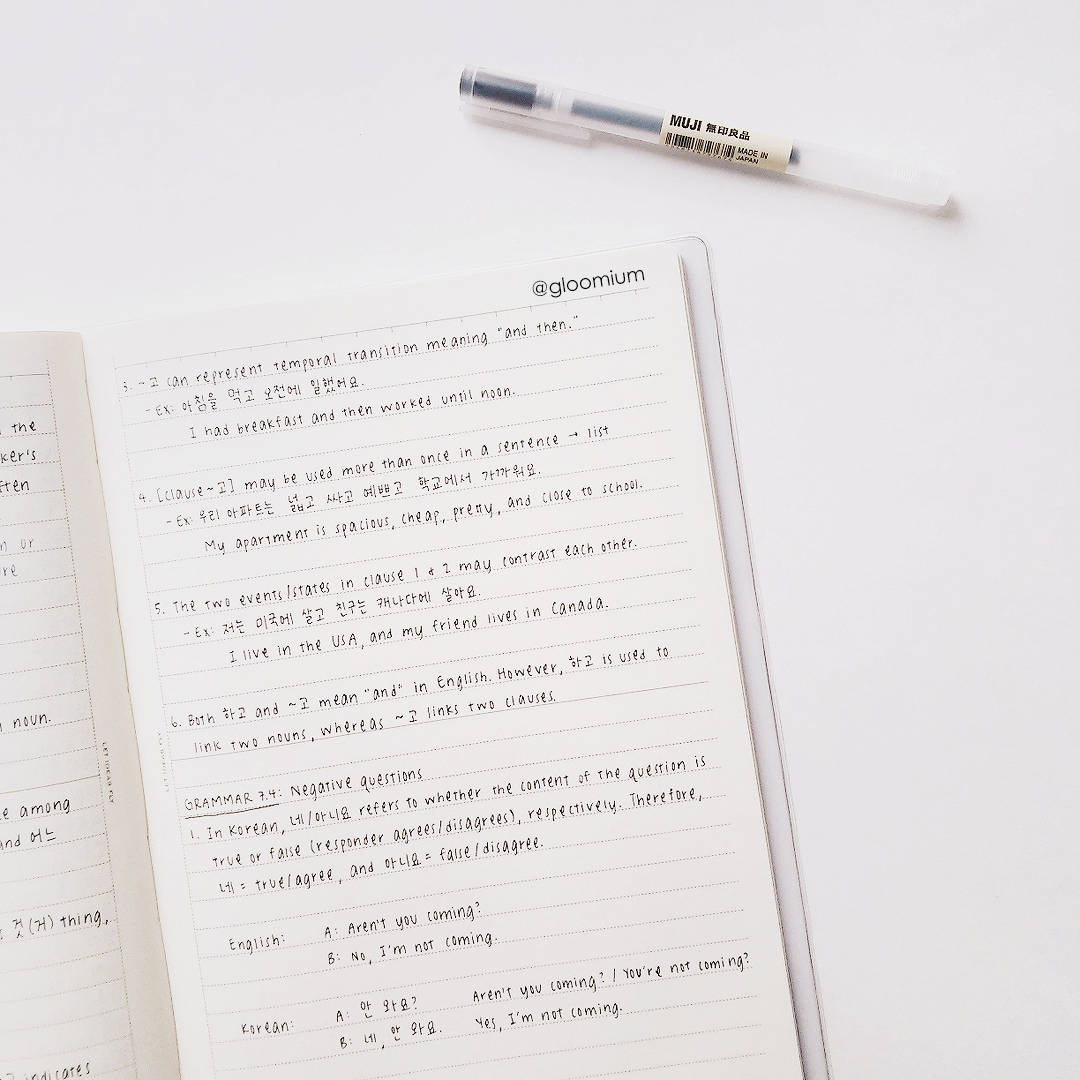 MUJI 無印良品
MADE IN
JAPAN
@gloomium
3. ~고 can represent temporal transition meaning "and then."
- Ex: 아침을 먹고 오전에 일했어요.
I had breakfast and then worked until noon.
4. [clause~고] may be used more than once in a sentence → list
- Ex: 우리 아파트는 넓고 싸고 예쁘고 학교에서 가까워요.
My apartment is spacious, cheap, pretty, and close to school.
5. The two events/states in clause 1 & 2 may contrast each other.
- Ex: 저는 미국에 살고 친구는 캐나다에 살아요.
I live in the USA, and my friend lives in Canada.
6. Both 하고 and ~고 mean "and" in English. However, 하고 is used to
link two nouns, whereas ~고 links two clauses.
GRAMMAR 7.4: Negative questions
1. In Korean, 네/아니요 refers to whether the content of the question is
true or false (responder agrees/disagrees), respectively. Therefore,
네 = true/agree, and 아니요 = false/disagree.
English: A: Aren't you coming?
B: No, I'm not coming.
Korean: A: 안 와요? Aren't you coming? / You're not coming?
B: 네, 안 와요. Yes, I'm not coming.
the
ker's
ften
or
re
noun.
LET IDEAS FLY
e among
and 어느
것(거) thing,
indicates